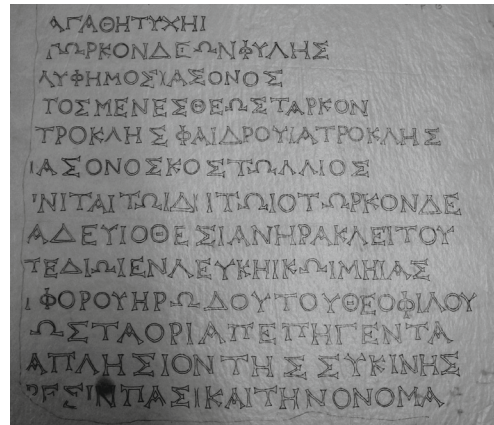 ΑΓΑΘΗΤΥΧΗΙ
ΤΩΡΚΟΝΔΕΩΝΦΥΛΗΣ
ΛΥΦΗΜΟΣΙΑΣΟΝΟΣ
ΤΟΣΜΕΝΕΣΘΕΩΣΤΑΡΚΟΝ
ΤΡΟΚΛΗΣΦΑΙΔΡΟΥΙΑΤΡΟΚΛΗΣ
ΙΑΣΟΝΟΣΚΟΣΤΩΛΛΙΟΣ
ΝΙΤΑΙΤΩΙΔΙΤΩΙΟΤΩΡΚΟΝΔΕ
ΑΔΕΥΙΟΘΕΣΙΑΝΗΡΑΚΛΕΙΤΟΥ
ΤΕΔΙΩΙΕΝΛΕΥΚΗΙΚΩΙΜΗΙΑΣ
ΙΦΟΡΟΥΗΡΩΔΟΥΤΟΥΘΕΟΦΙΛΟΥ
ΩΣΤΑΟΡΙΑΠΕΠΗΓΕΝΤΑ
ΑΠΛΗΣΙΟΝΤΗΣΣΥΚΙΝΗΣ
ΡΕΣΙΝΠΑΣΙΚΑΙΤΗΝΟΝΟΜΑ